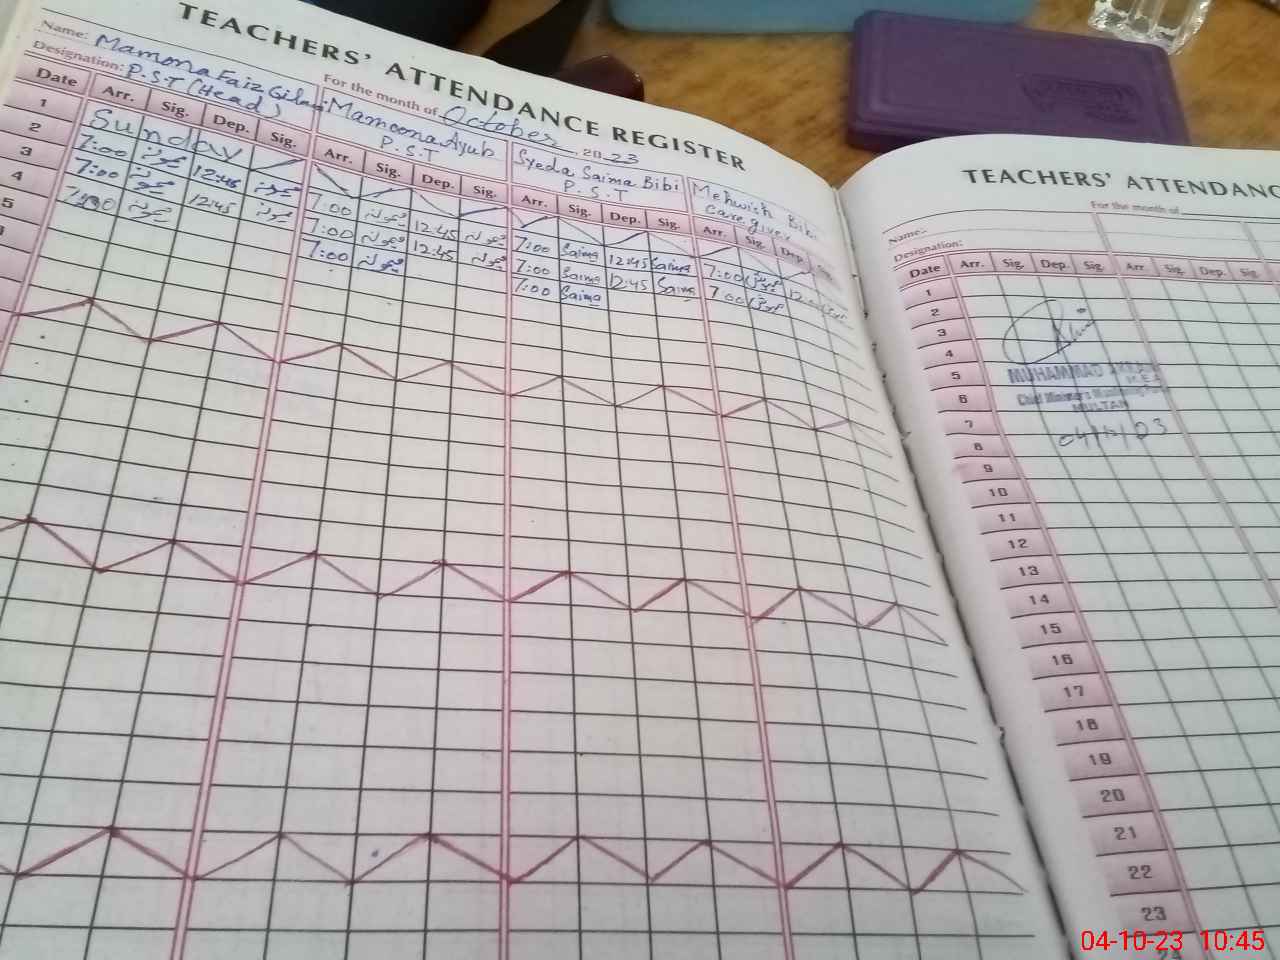 TEACHERS' ATTENDANCE REGISTER
Name: Mamona Faiz Gilani
Designation: P.S.T (Head)
For the month of October 2023
Mamoona Ayub
P.S.T
Syeda Saima Bibi
P.S.T
Mehwish Bibi
Care giver
Date Arr. Sig. Dep. Sig. Arr. Sig. Dep. Sig. Arr. Sig. Dep. Sig. Arr. Sig. Dep. Sig.
1 Sunday
2 7:00 12:45 7:00 12:45 7:00 Saima 12:45 Saima 7:00
3 7:00 12:45 7:00 12:45 7:00 Saima 12:45 Saima 7:00
4 7:00 7:00 7:00 Saima
5
TEACHERS' ATTENDANC
For the month of
Name:-
Designation:
Date Arr. Sig. Dep. Sig. Arr. Sig. Dep. Sig.
1
2
3
4
5
6
7
8
9
10
11
12
13
14
15
16
17
18
19
20
21
22
23
24
MUHAMMAD AKRAM
M.E.A
Chief Minister's Monitoring
MULTAN
04-10-23 10:45